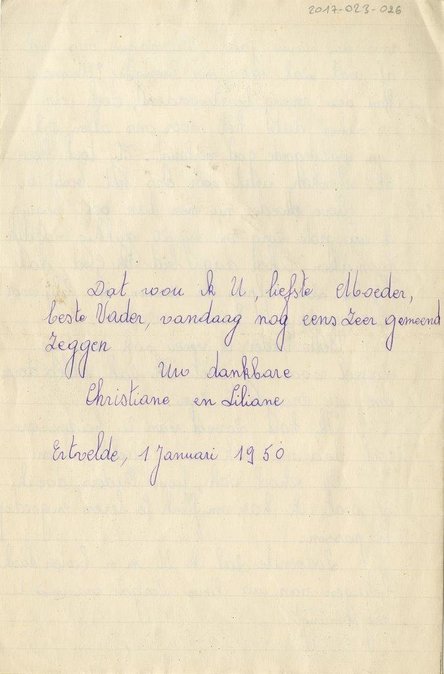 2017-023-026
Dat wou ik U, liefste Moeder,
beste Vader, vandaag nog eens zeer gemeend
zeggen
Uw dankbare
Christiane en Liliane
Ertvelde, 1 Januari 1950